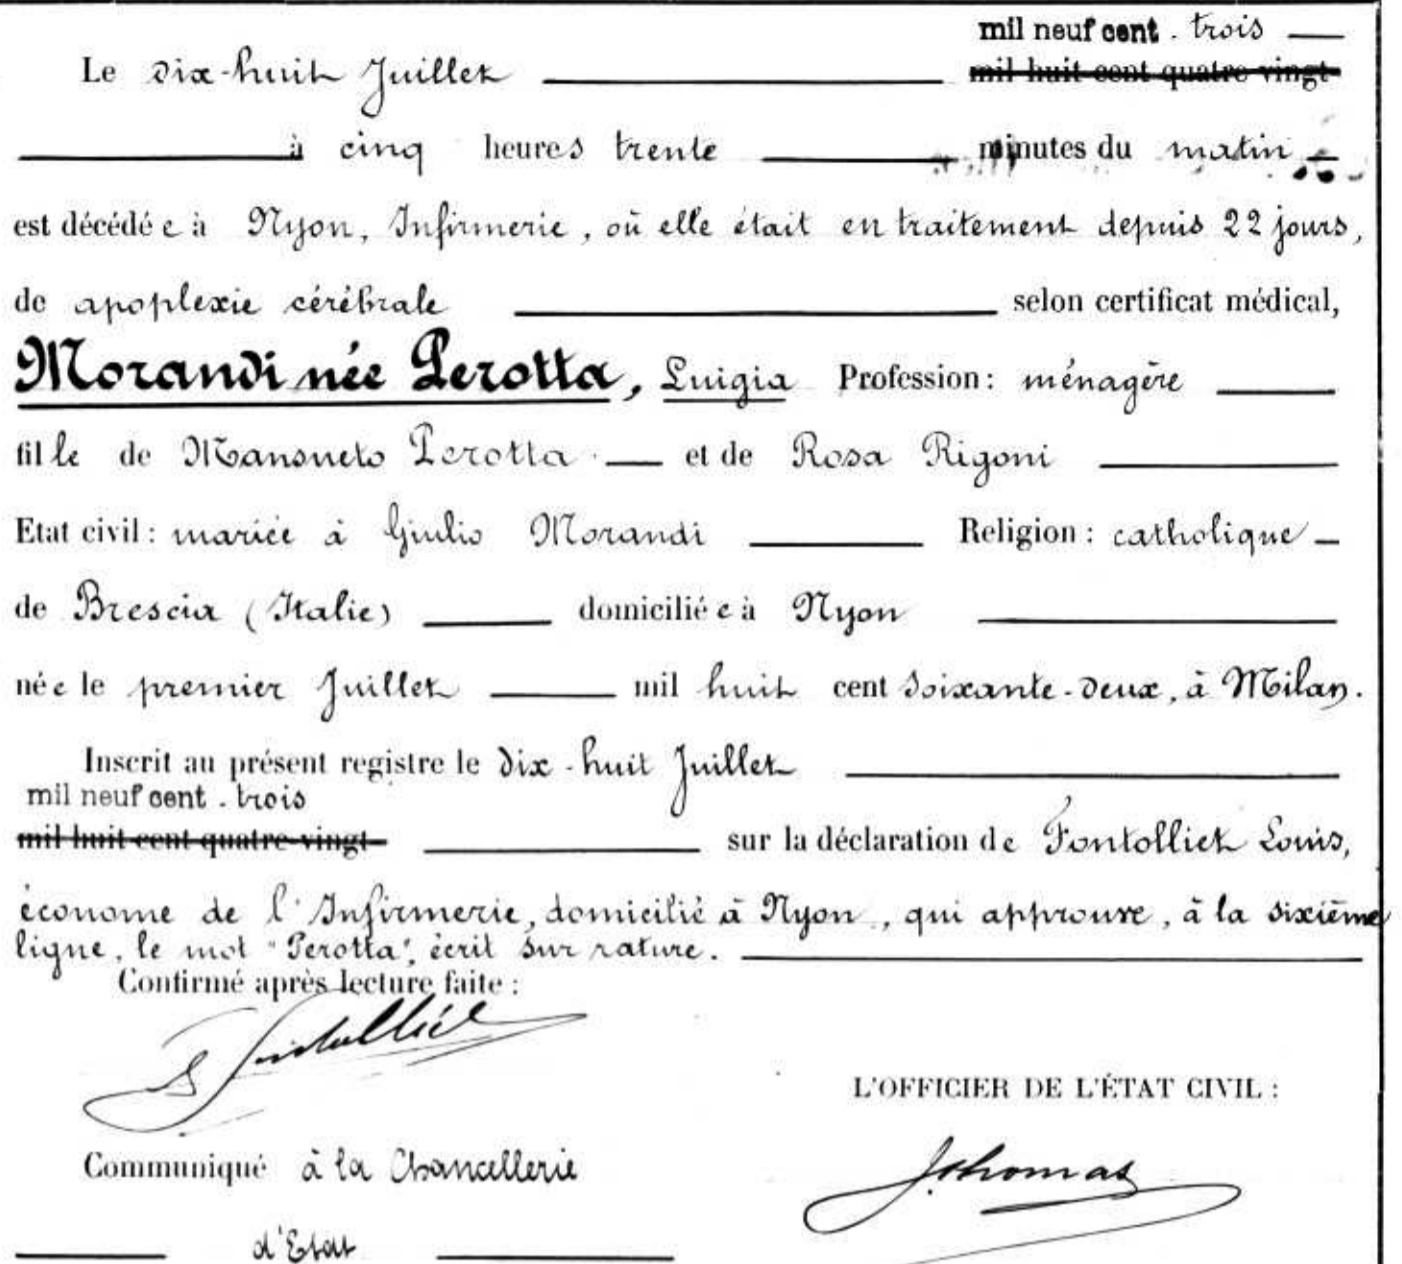 mil neuf cent. trois
Le dix-huit Juillet mil huit cent quatre-vingt-
à cinq heures trente minutes du matin
est décédée à Nyon, Infirmerie, où elle était en traitement depuis 22 jours,
de apoplexie cérébrale selon certificat médical,
Morandi née Perotta, Luigia Profession: ménagère
fille de Mansueto Perotta et de Rosa Rigoni
Etat civil: mariée à Giulio Morandi Religion: catholique
de Brescia (Italie) domiciliée à Nyon
née le premier Juillet mil huit cent soixante-deux, à Milan.
Inscrit au présent registre le dix-huit Juillet
mil neuf cent. trois
mil huit cent quatre-vingt- sur la déclaration de Fontolliet Louis,
économe de l'Infirmerie, domicilié à Nyon, qui approuve, à la sixième
ligne, le mot "Perotta", écrit sur rature.
Confirmé après lecture faite:
L Fontolliet
L'OFFICIER DE L'ÉTAT CIVIL:
Communiqué à la Chancellerie
d'Etat